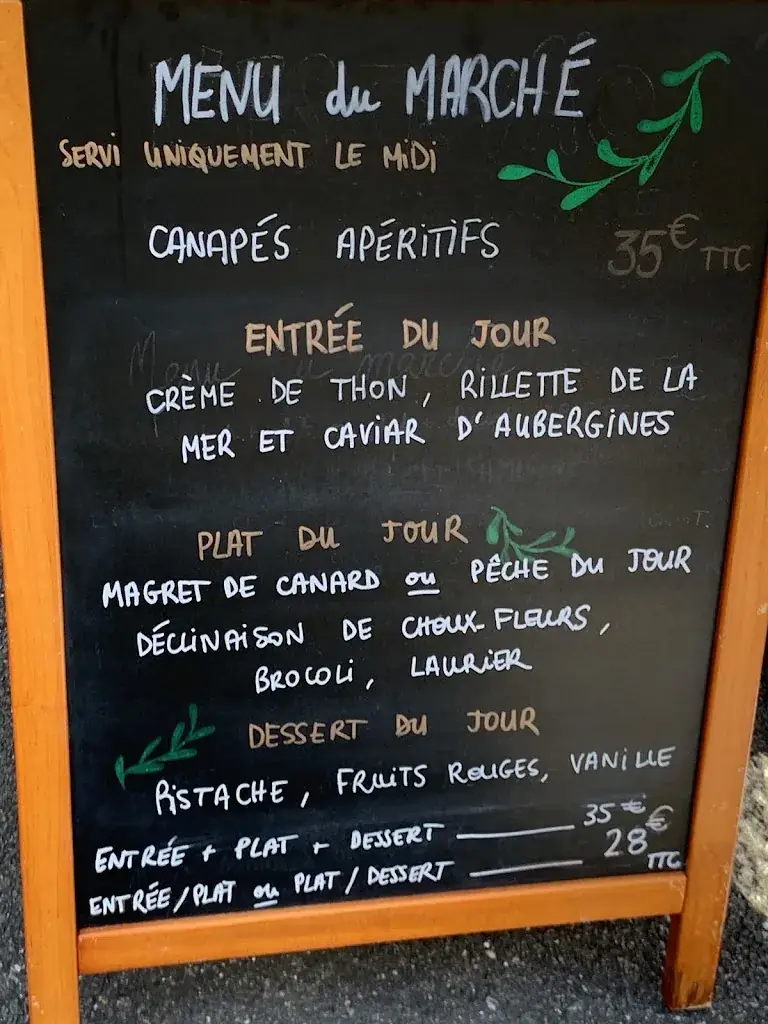 MENU du MARCHÉ
SERVI UNIQUEMENT LE MIDI
CANAPÉS APÉRITIFS 35€ TTC
ENTRÉE DU JOUR
CRÈME DE THON, RILLETTE DE LA
MER ET CAVIAR D'AUBERGINES
PLAT DU JOUR
MAGRET DE CANARD ou PÊCHE DU JOUR
DÉCLINAISON DE CHOUX-FLEURS,
BROCOLI, LAURIER
DESSERT DU JOUR
PISTACHE, FRUITS ROUGES, VANILLE
ENTRÉE + PLAT + DESSERT 35€
ENTRÉE/PLAT ou PLAT/DESSERT 28€ TTC